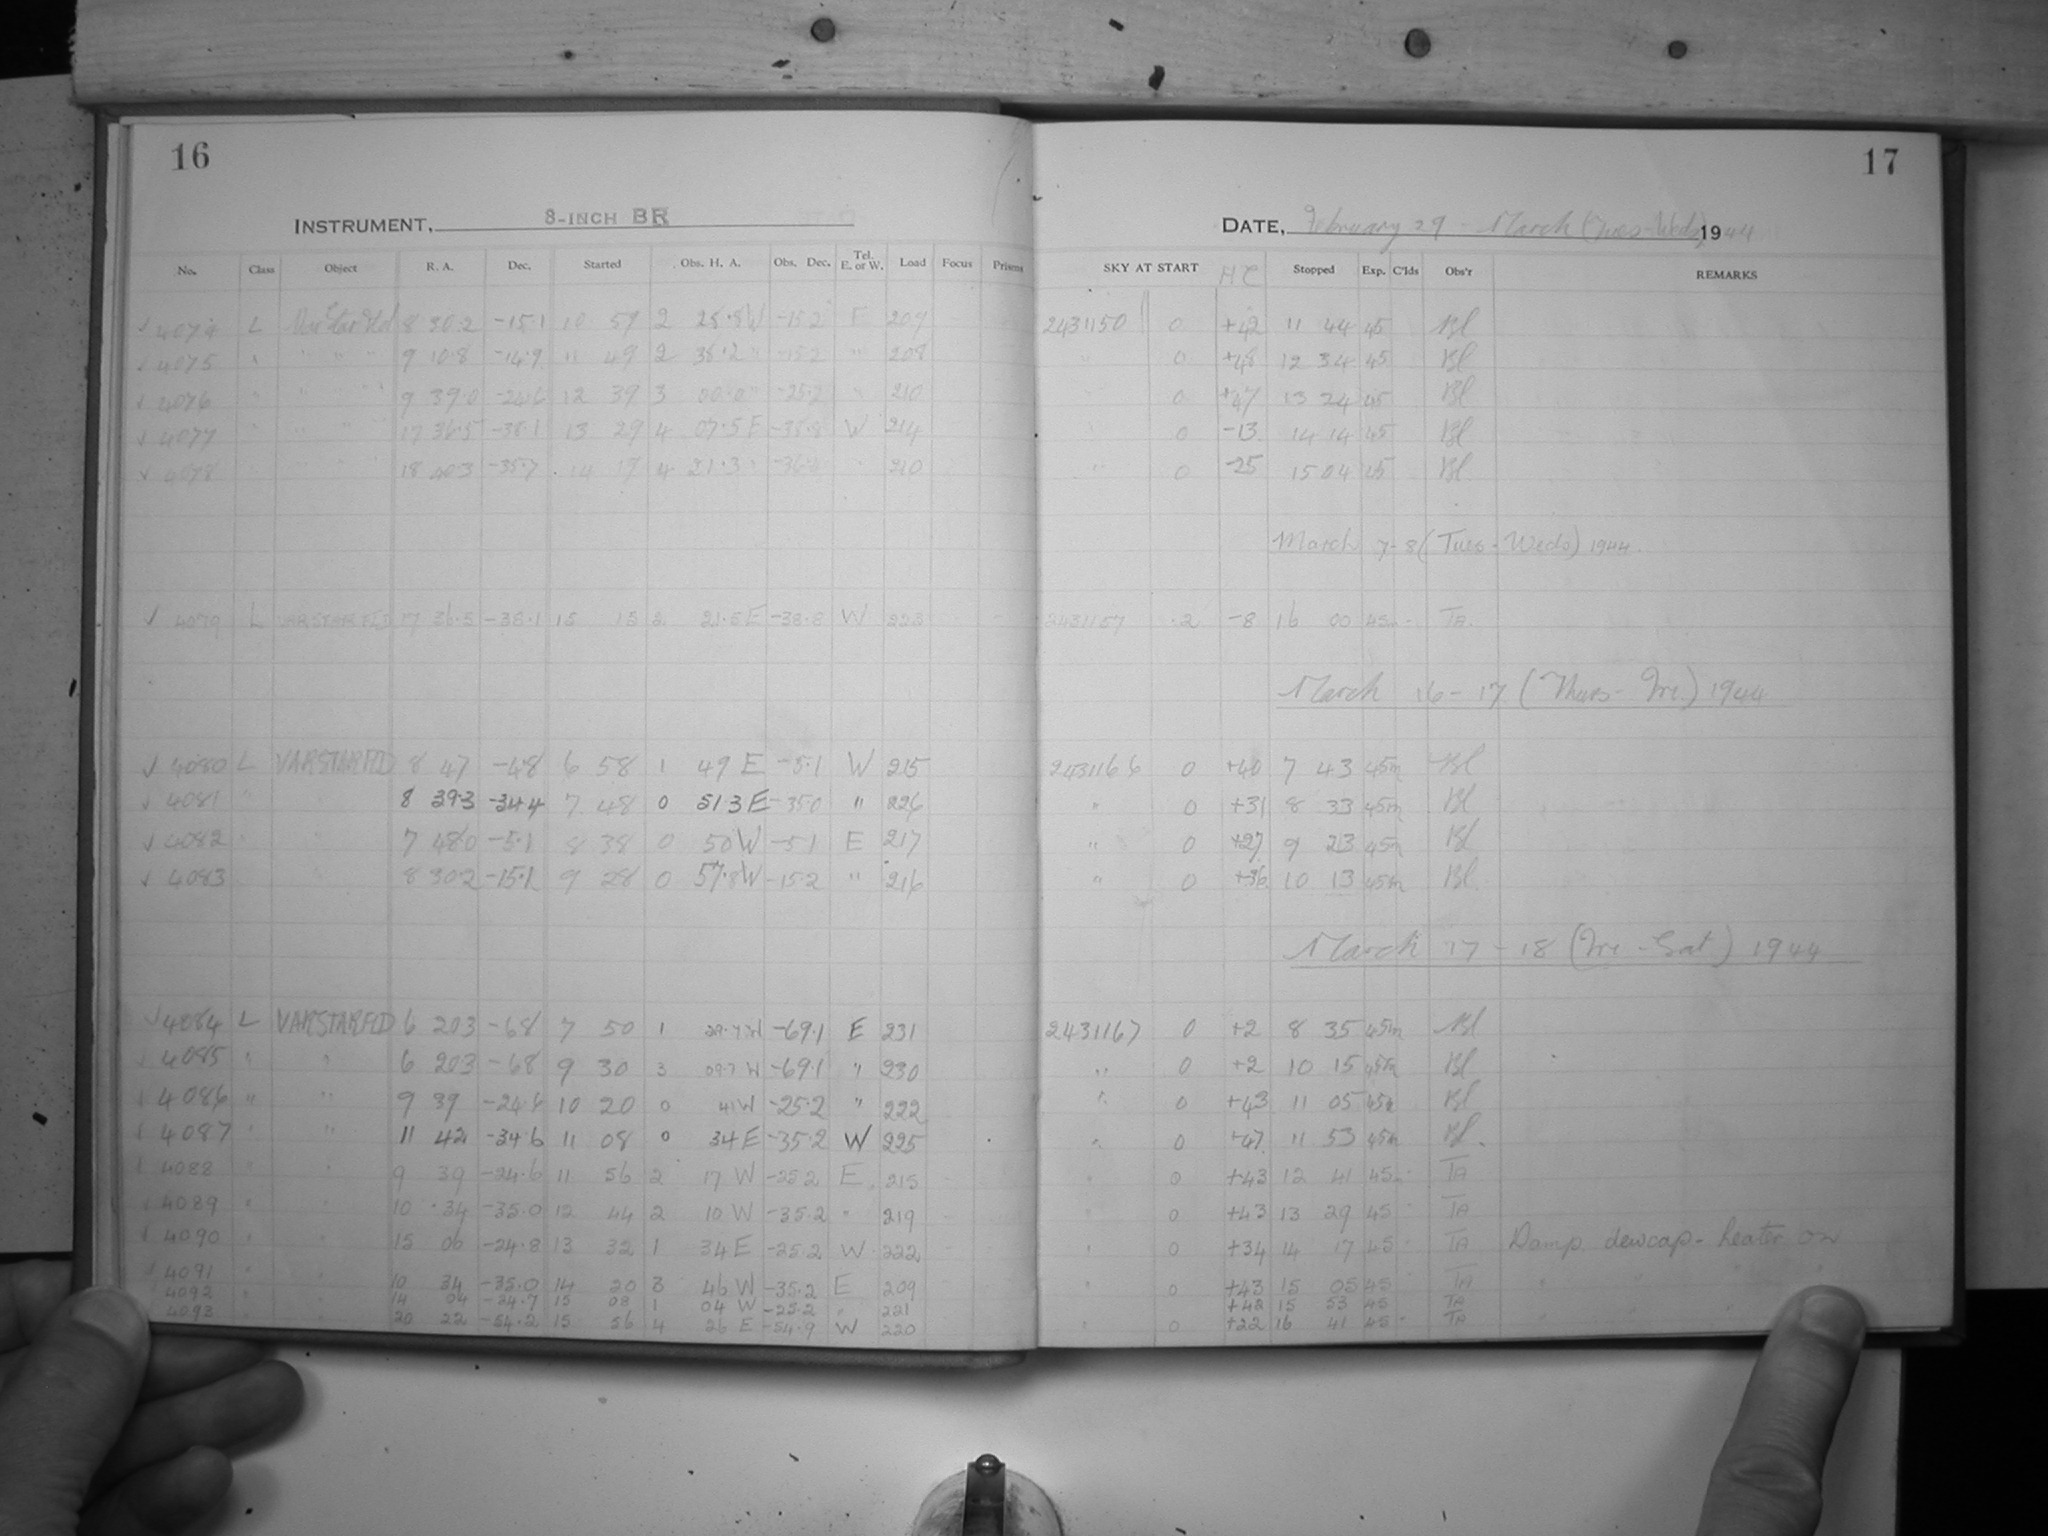 16
17
INSTRUMENT, 8-INCH BR
DATE, February 29 - March (Tues-Weds) 1944
No. Class Object R. A. Dec. Started Obs. H. A. Obs. Dec. Tel. E. or W. Load Focus Prisms SKY AT START HC Stopped Exp. C'lds Obs'r REMARKS
4074 L Var Star Fld 8 30.2 -15.1 10 59 2 25.8 W -15.2 E 209 2431150 0 +42 11 44 45 Bl
4075 " " " " 9 10.8 -14.9 11 49 2 36.2 " -15.2 " 208 " 0 +48 12 34 45 Bl
4076 " " " " 9 39.0 -24.6 12 39 3 00.0 " -25.2 " 210 " 0 +47 13 24 45 Bl
4077 " " " 17 36.5 -38.1 13 29 4 07.5 E -38.8 W 214 0 -13 14 14 45 Bl
4078 18 40.3 -35.7 14 19 4 21.3 " 210 " 0 -25 15 04 45 Bl
March 7-8 (Tues-Weds) 1944.
4079 L VARSTARFLD 17 36.5 -38.1 15 15 2 21.5 E -38.8 W 223 2431157 .2 -8 16 00 45m TA.
March 16-17 (Thurs-Fri.) 1944
4080 L VARSTARFLD 8 47 -4.8 6 58 1 49 E -5.1 W 215 2431166 0 +40 7 43 45m Bl
4081 " " 8 39.3 -34.4 7 48 0 51.3 E -35.0 " 226 " 0 +31 8 33 45m Bl
4082 " " 7 48.0 -5.1 8 38 0 50 W -5.1 E 217 " 0 +27 9 23 45m Bl
4083 8 30.2 -15.1 9 28 0 57.8 W -15.2 " 216 " 0 +36 10 13 45m Bl
March 17-18 (Fri-Sat) 1944
4084 L VARSTARFLD 6 20.3 -68 7 50 1 29.7 W -69.1 E 231 2431167 0 +2 8 35 45m Bl
4085 " " 6 20.3 -68 9 30 3 09.7 W -69.1 " 230 " 0 +2 10 15 45m Bl
4086 " " 9 39 -24.6 10 20 0 41 W -25.2 " 222 " 0 +43 11 05 45m Bl
4087 " " 11 42 -34.6 11 08 0 34 E -35.2 W 225 " 0 +47 11 53 45m Bl.
4088 " " 9 39 -24.6 11 56 2 17 W -25.2 E 215 " 0 +43 12 41 45m TA
4089 " " 10 34 -35.0 12 44 2 10 W -35.2 " 219 " 0 +43 13 29 45 TA
4090 " " 15 06 -24.8 13 32 1 34 E -25.2 W 222 " 0 +34 14 17 45 TA Damp dewcap-heater on
4091 " " 10 34 -35.0 14 20 3 46 W -35.2 E 209 " 0 +43 15 05 45 TA " " " "
4092 14 04 -24.7 15 08 1 04 W -25.2 " 221 +42 15 53 45 TA
4093 20 22 -54.2 15 56 4 26 E -54.9 W 220 " 0 +22 16 41 45 TA " " "